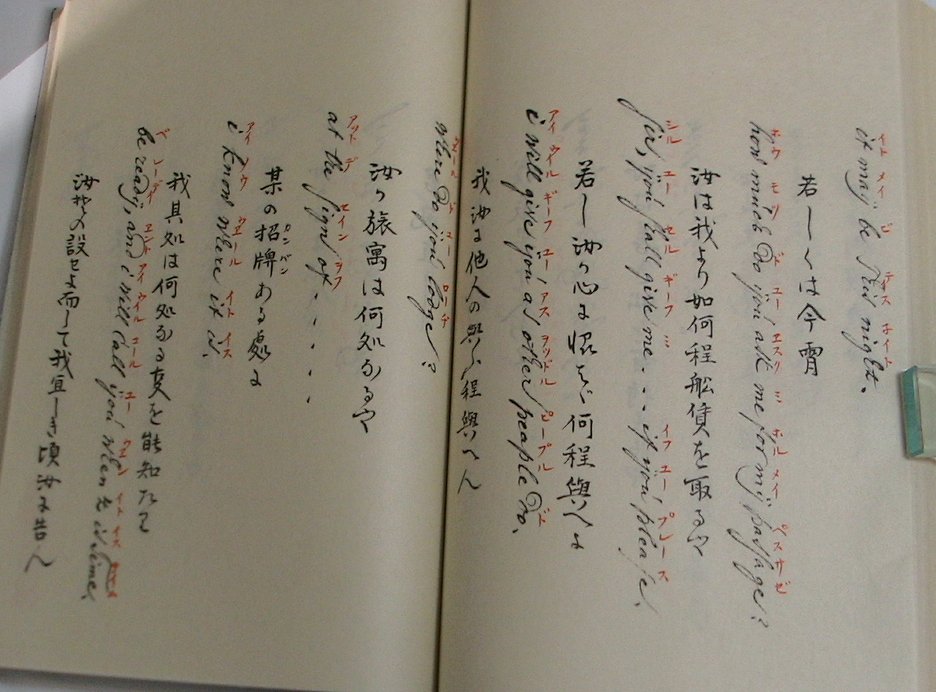 イト メイ ビ デイス
it maij be this night.
若しくは今宵
ホウ モツ ド ユー エスク ミ ホル メイ ペスサゼ
how much do you ask me for mij passage?
汝は我より如何程舩賃を取るや
シル ユー セル ギーフ ミ イフ ユー プレース
sir, you shall give me . . . if you please.
若し汝の心に慍らば何程與へよ
アイ ウイル ギーフ ユー アス ヲツドル ピープル ド
i will give you as other peaple do.
我汝に他人の與ふ程與へん
ド ユー ロヂ
where do you lodge?
汝の旅寓は何処なるや
アツト デ セイン ヲフ
at the sign of . . . . .
某の招牌ある處に
カンバン
アイ ノウ ウエール イト イス
i know where it is.
我其処は何処なる哀を能知たり
ベ レーデイ エンド アイ ウイル コール ユー ウエン イト イス
be ready, and i will call you when it is time.
汝其の設せよ而して我宜しき頃汝に告へ